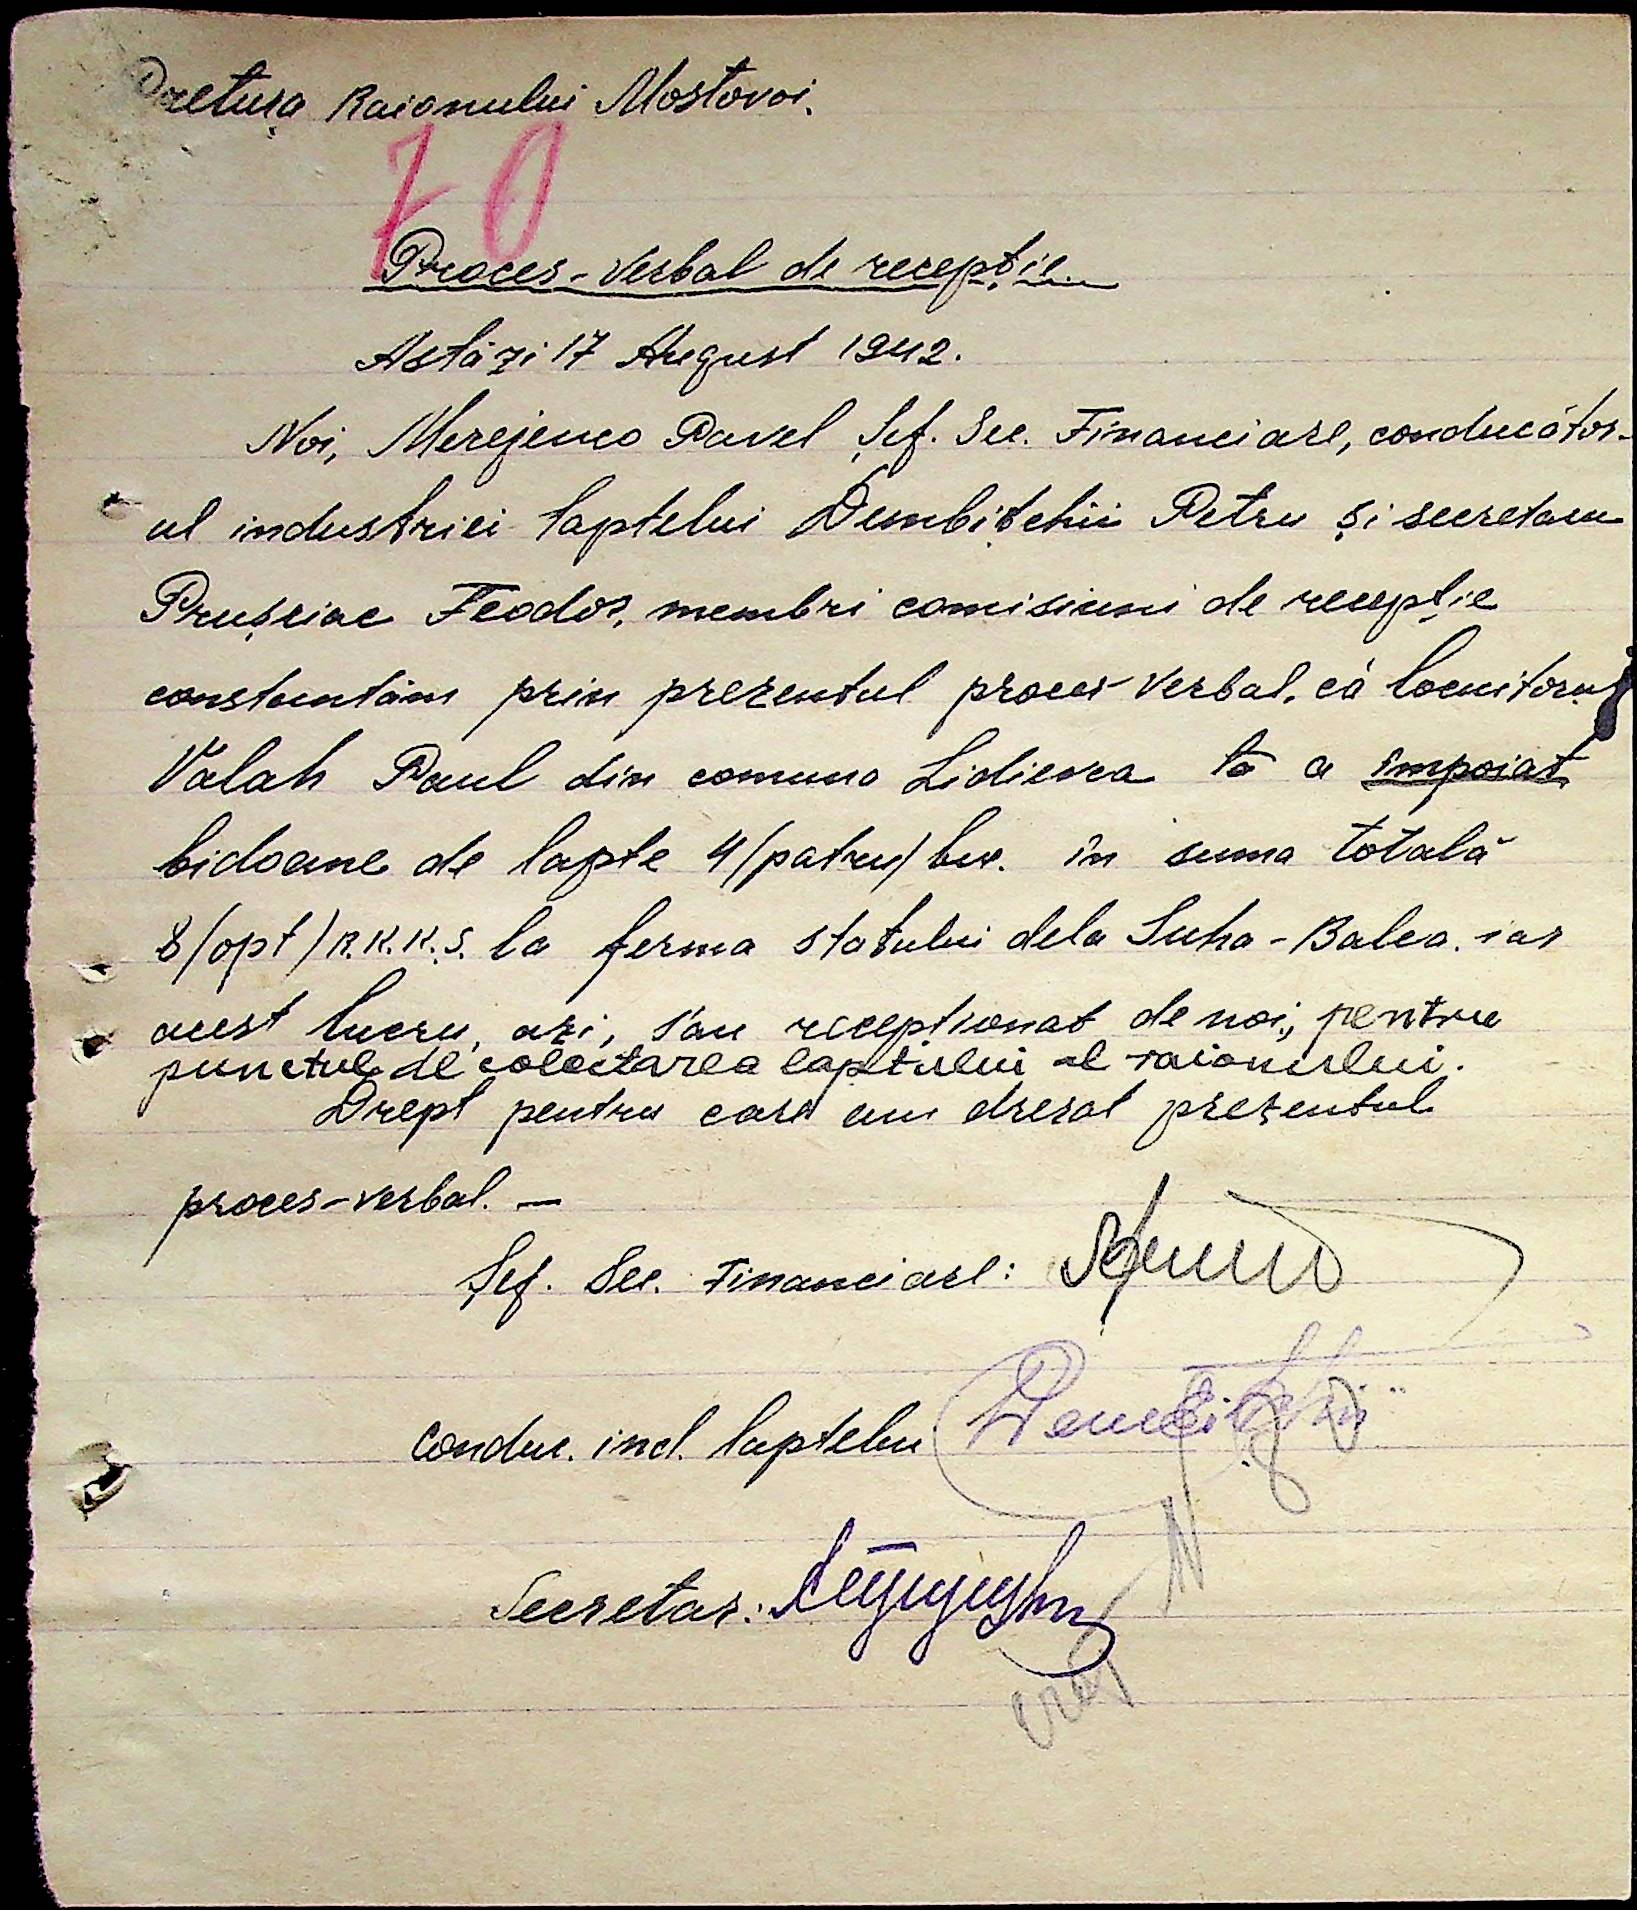 Pretura Raionului Mostovoi.
70
Proces-Verbal de recepție.
Astăzi 17 August 1942.
Noi, Merejenco Pavel Șef. Sec. Financiare, conducător-
ul industriei laptelui Dembițchii Petru și secretaru
Prușciac Feodor, membri comisiuni de recepție
constantăm prin prezentul proces verbal, că locuitoru
Valah Paul din comuna Lidievca a impoiat
bidoane de lapte 4/patru/buc. în suma totală
8/opt/R.K.K.S. la ferma statului dela Suha-Balca. iar
acest lucru, azi, s'au recepționat de noi, pentru
punctul de colectarea laptelui al raionului.
Drept pentru care am dresat prezentul
proces-verbal. —
Șef. Sec. Financiare:
Conduc. ind. laptelui
Secretar: